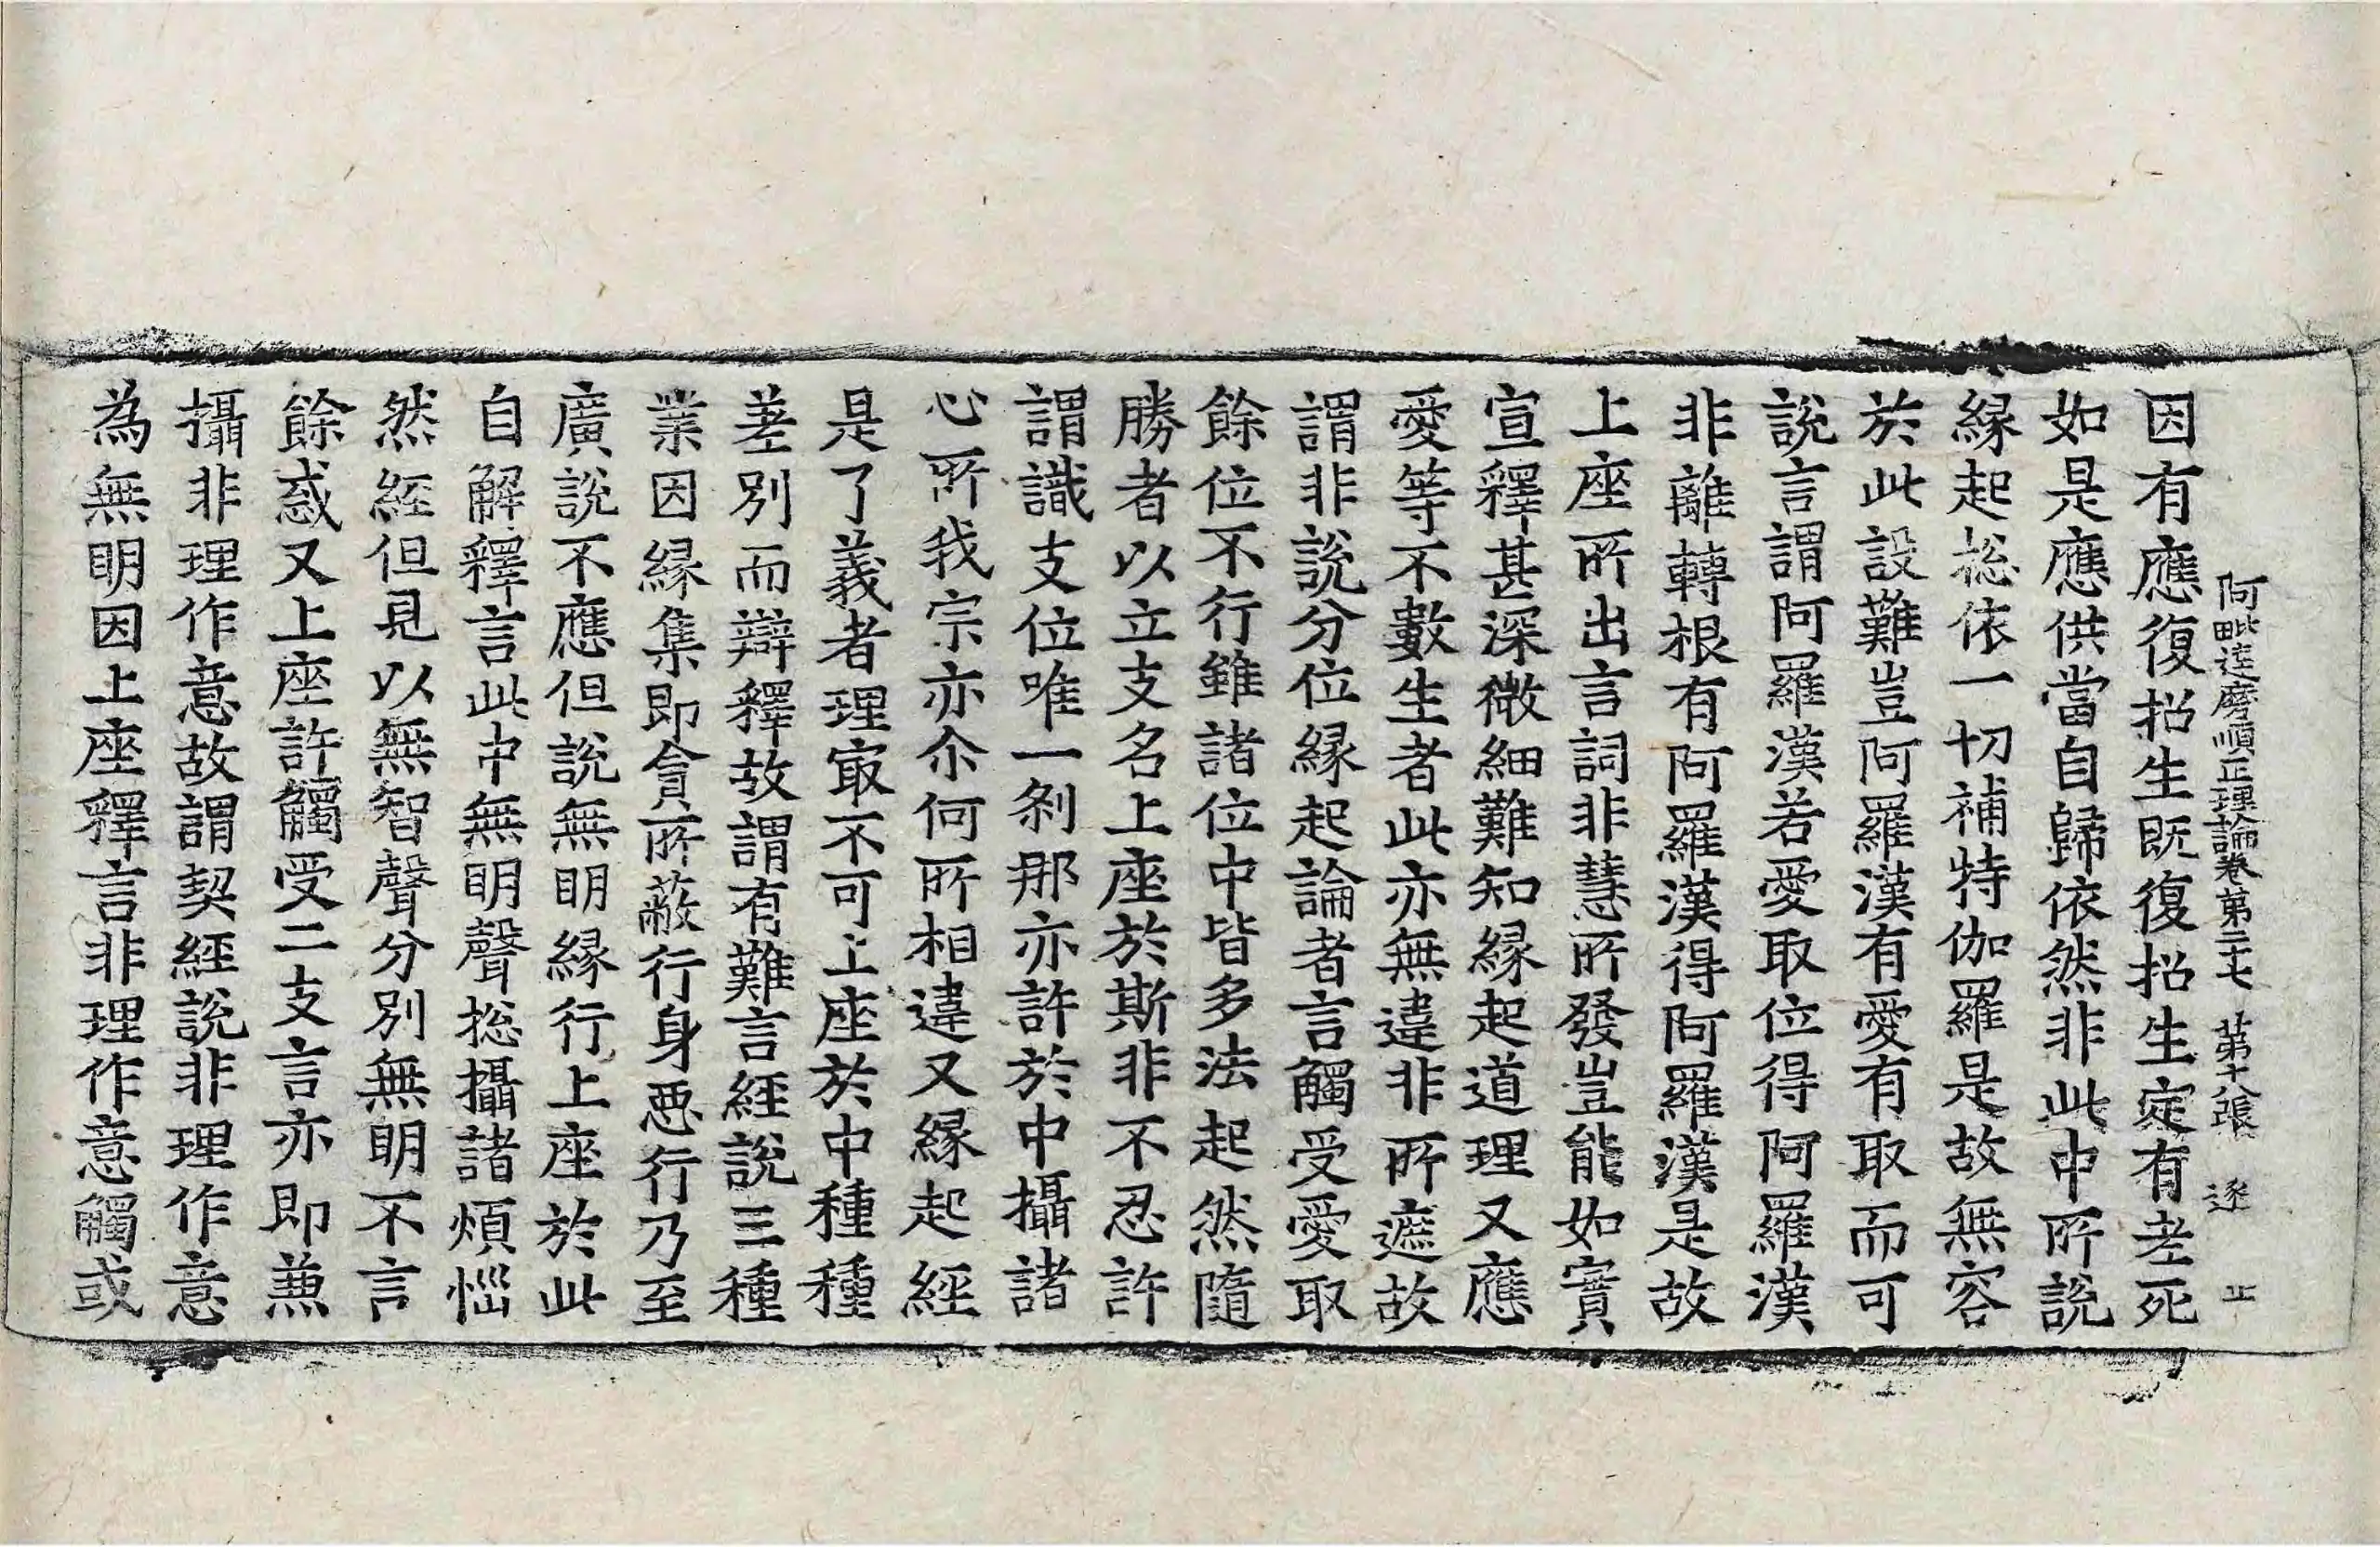 阿毗達磨順正理論卷第二十七 第十八張 逐 正
因有應復招生既復招生定有老死
如是應供當自歸依然非此中所說
緣起捴依一切補特伽羅是故無容
於此設難豈阿羅漢有愛有取而可
說言謂阿羅漢若愛取位得阿羅漢
非離轉根有阿羅漢得阿羅漢是故
上座所出言詞非慧所發豈能如實
宣釋甚深微細難知緣起道理又應
愛等不數生者此亦無違非所遮故
謂非說分位緣起論者言觸受愛取
餘位不行雖諸位中皆多法起然隨
勝者以立支名上座於斯非不忍許
謂識支位唯一剎那亦許於中攝諸
心所我宗亦尒何所相違又緣起經
是了義者理㝡不可上座於中種種
差別而辯釋故謂有難言經說三種
業因緣集即貪所蔽行身惡行乃至
廣說不應但說無明緣行上座於此
自解釋言此中無明聲捴攝諸煩惱
然經但見以無智聲分別無明不言
餘惑又上座許觸受二支言亦即兼
攝非理作意故謂契經說非理作意
為無明因上座釋言非理作意觸或